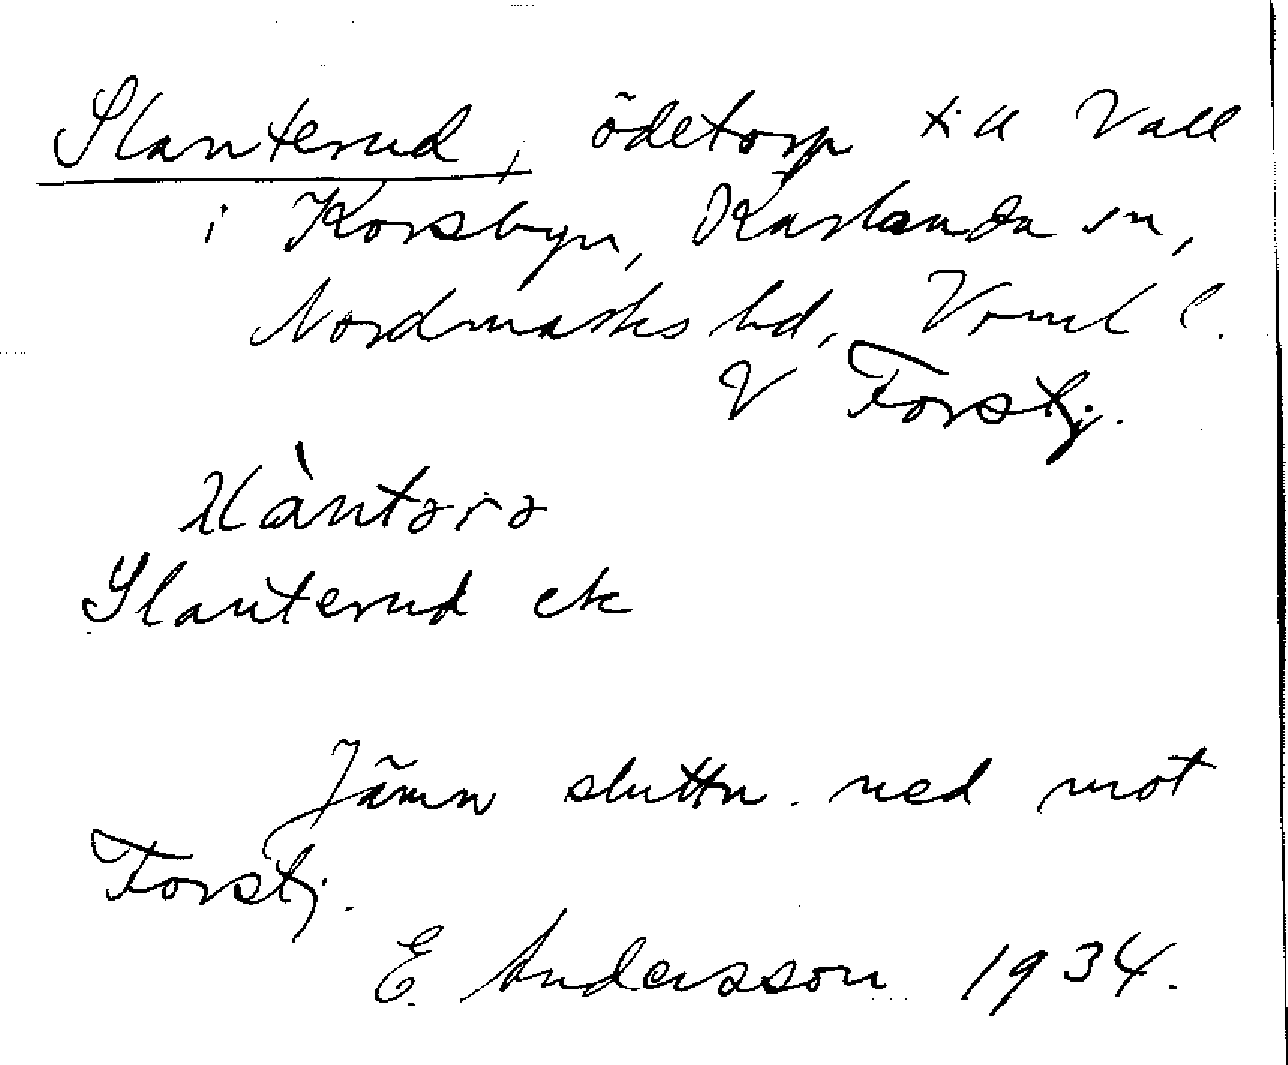 Slanterud, ödetorp till Vall
i Korsbyn, Karlanda sn,
Nordmarks hd, Vrml l.
V Forstj.
slàntərə
Slanterud ek
Jämn sluttn. ned mot
Forstj.
E. Andersson 1934.